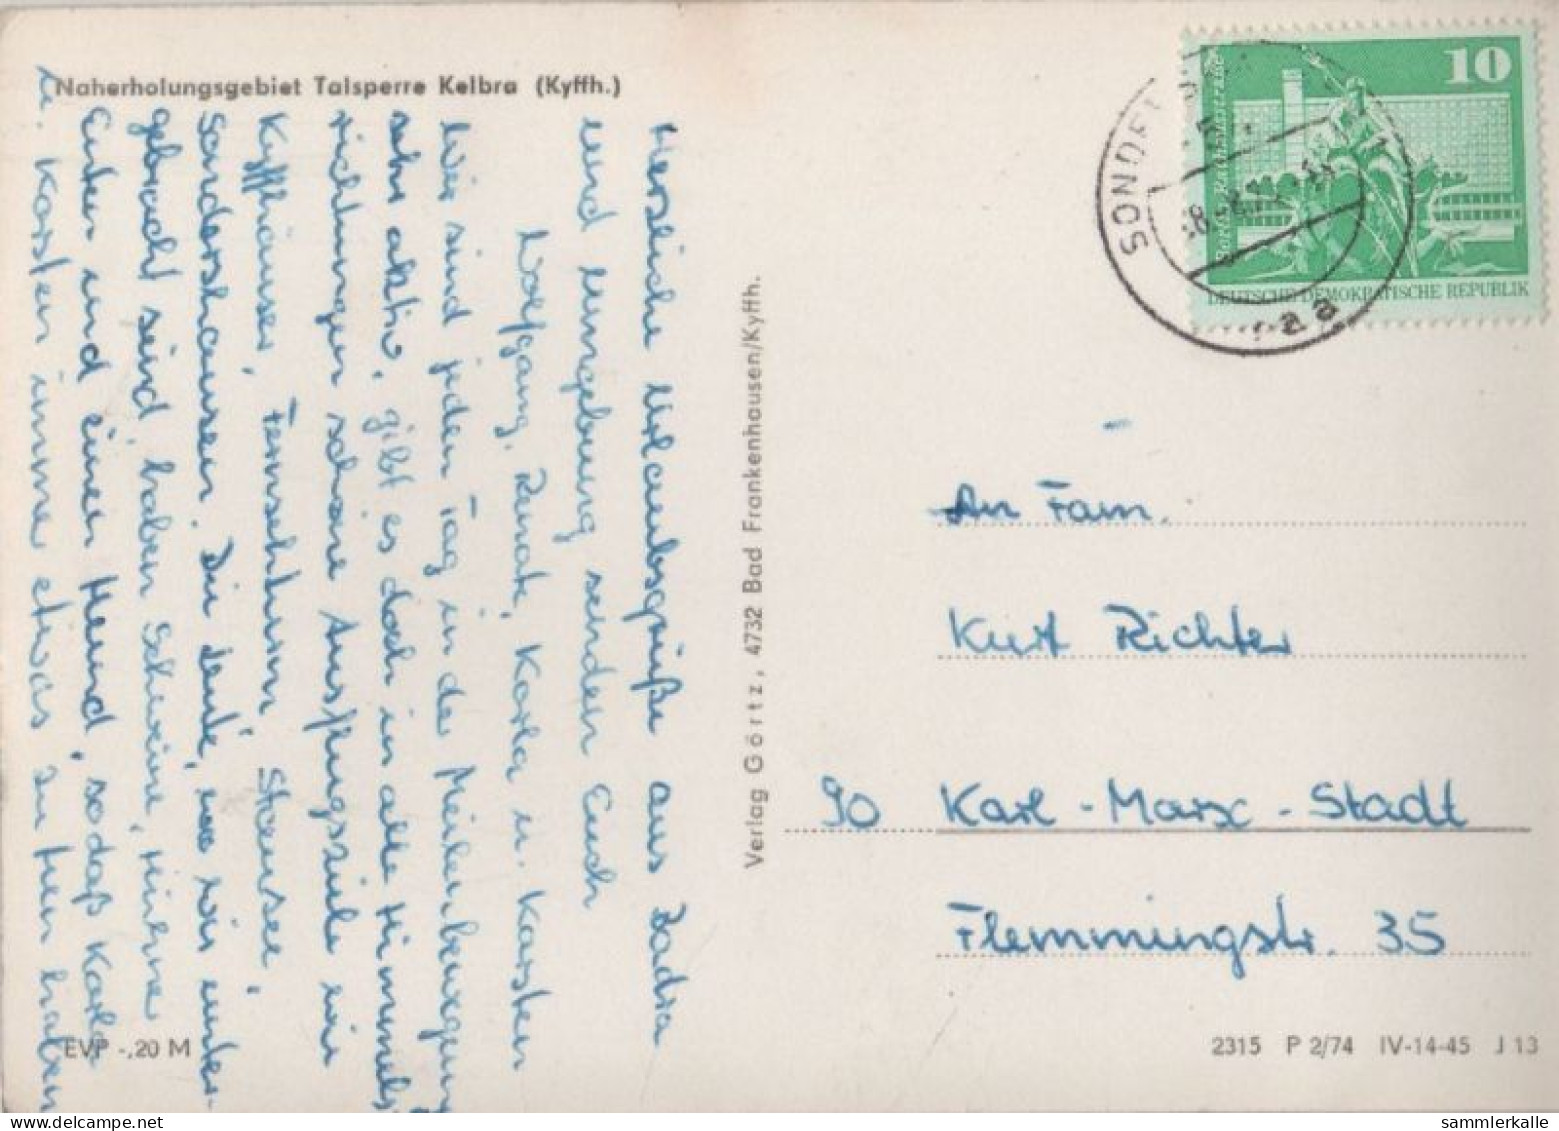 Naherholungsgebiet Talsperre Kelbra (Kyffh.)
Herzliche Urlaubsgrüße aus Badra
und Umgebung senden Euch
Wolfgang, Renate, Karla u. Karsten
Wir sind jeden Tag in der Meilenbewegung
sehr aktiv, gibt es doch in alle Himmels-
richtungen schöne Ausflugsziele wie
Kyffhäuser, Fernsehturm, Stausee,
Sondershausen. Die Leute, wo wir unter-
gebracht sind, haben Schweine, Hühner
Enten und einen Hund, sodaß Karla
u. Karsten immer etwas zu tun haben
EVP -,20 M
Verlag Görtz, 4732 Bad Frankenhausen/Kyffh.
10
DEUTSCHE DEMOKRATISCHE REPUBLIK
An Fam.
Kurt Richter
90 Karl-Marx-Stadt
Flemmingstr. 35
2315 P 2/74 IV-14-45 J 13
sammlerkalle